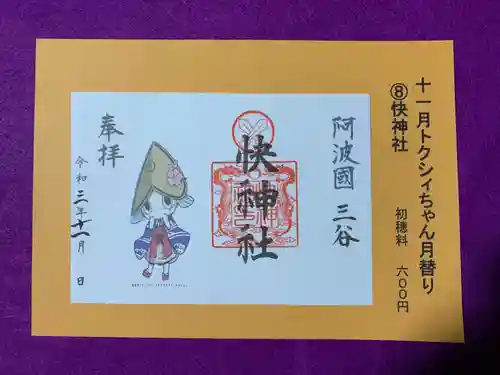 十一月トクシィちゃん月替り
⑧快神社
初穂料 六００円
阿波國 三谷
快神社
奉拝
令和三年十一月 日